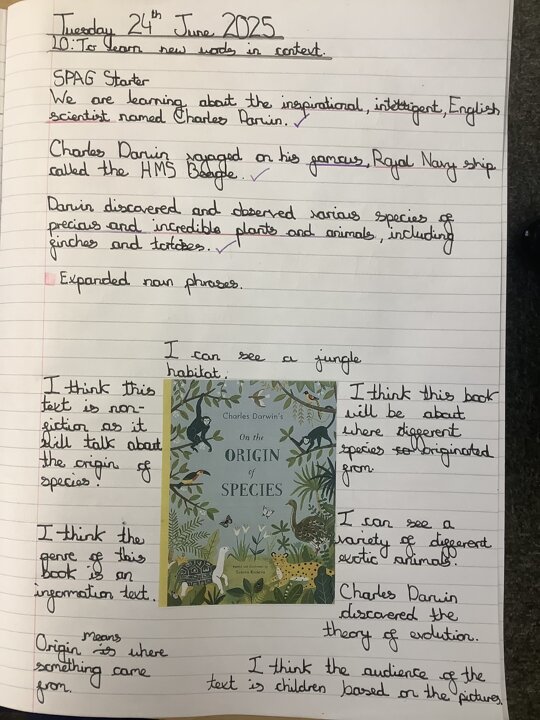 Tuesday 24th June 2025
LO: To learn new words in context.
SPAG Starter
We are learning about the inspirational, intelligent, English
scientist named Charles Darwin.
Charles Darwin voyaged on his famous, Royal Navy ship
called the HMS Beagle.
Darwin discovered and observed various species of
precious and incredible plants and animals, including
finches and tortoises.
Expanded noun phrases.
I can see a jungle
habitat.
I think this
text is non-
fiction as it
will talk about
the origin of
species.
I think the
genre of this
book is an
information text.
Origin means is where
something came
from.
Charles Darwin's
On the
ORIGIN
of
SPECIES
Retold and illustrated by
Sabina Radeva
I think this book
will be about
where different
species so originated
from.
I can see a
variety of different
exotic animals.
Charles Darwin
discovered the
theory of evolution.
I think the audience of the
text is children based on the pictures.